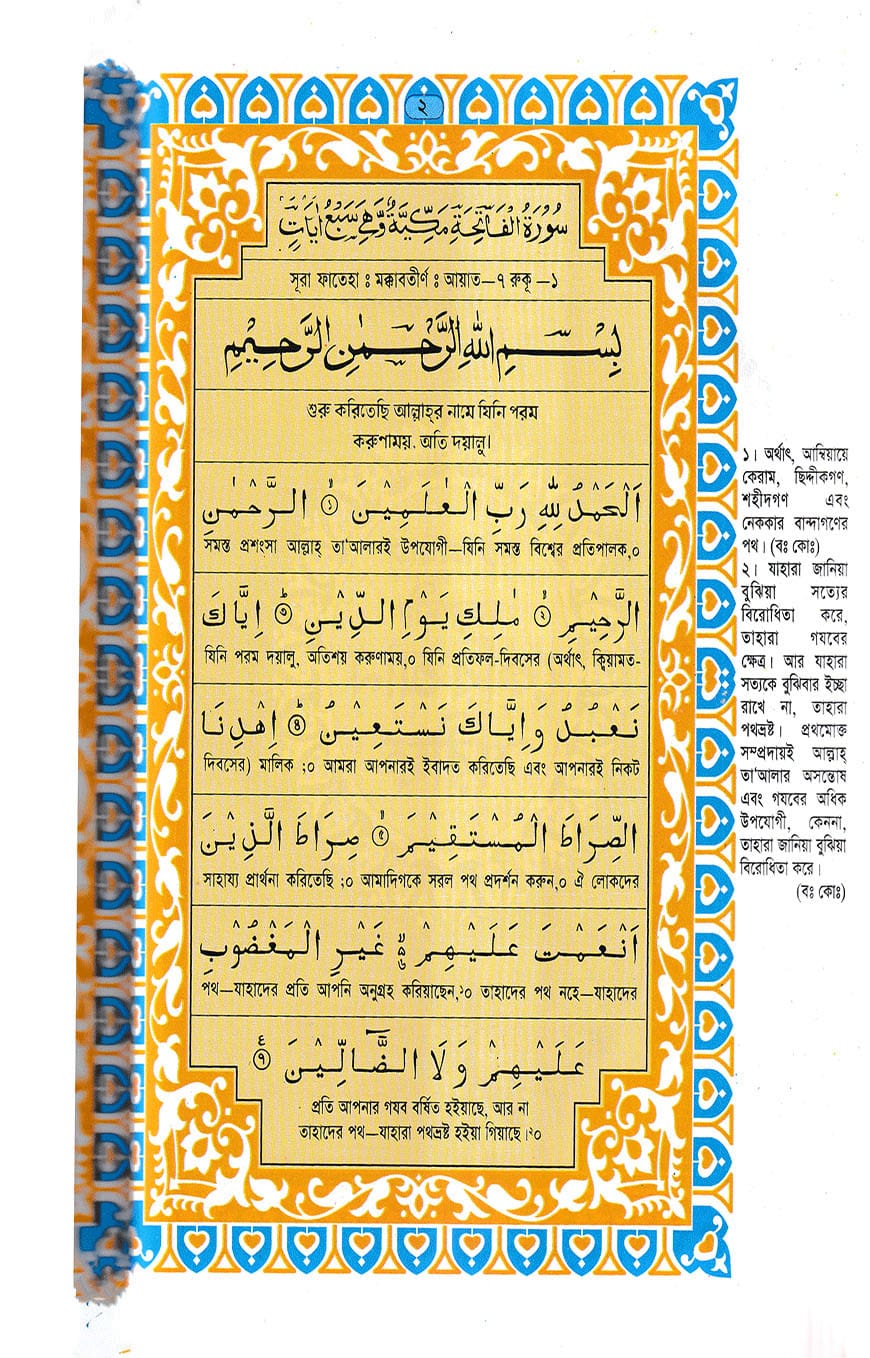 ২
سُوْرَةُ الْفَاتِحَةِ مَكِّيَّةٌ وَّهِيَ سَبْعُ اٰيَاتٍ
সূরা ফাতেহা ঃ মক্কাবতীর্ণ ঃ আয়াত–৭ রুকূ –১
بِسْمِ اللهِ الرَّحْمٰنِ الرَّحِيْمِ
শুরু করিতেছি আল্লাহ্‌র নামে যিনি পরম
করুণাময়. অতি দয়ালু।
اَلْحَمْدُ لِلّٰهِ رَبِّ الْعٰلَمِيْنَ ۙ﴿۱﴾ الرَّحْمٰنِ
সমস্ত প্রশংসা আল্লাহ্ তা‘আলারই উপযোগী—যিনি সমস্ত বিশ্বের প্রতিপালক,০
الرَّحِيْمِ ۙ﴿۲﴾ مٰلِكِ يَوْمِ الدِّيْنِ ؕ﴿۳﴾ اِيَّاكَ
যিনি পরম দয়ালু, অতিশয় করুণাময়,০ যিনি প্রতিফল-দিবসের (অর্থাৎ, ক্বিয়ামত-
نَعْبُدُ وَاِيَّاكَ نَسْتَعِيْنُ ؕ﴿۴﴾ اِهْدِنَا
দিবসের) মালিক ;০ আমরা আপনারই ইবাদত করিতেছি এবং আপনারই নিকট
الصِّرَاطَ الْمُسْتَقِيْمَ ۙ﴿۵﴾ صِرَاطَ الَّذِيْنَ
সাহায্য প্রার্থনা করিতেছি ;০ আমাদিগকে সরল পথ প্রদর্শন করুন,০ ঐ লোকদের
اَنْعَمْتَ عَلَيْهِمْ ۙ۬﴿۶﴾ غَيْرِ الْمَغْضُوْبِ
পথ—যাহাদের প্রতি আপনি অনুগ্রহ করিয়াছেন,১০ তাহাদের পথ নহে—যাহাদের
عَلَيْهِمْ وَلَا الضَّآلِّيْنَ ﴿۷﴾ ع
প্রতি আপনার গযব বর্ষিত হইয়াছে, আর না
তাহাদের পথ—যাহারা পথভ্রষ্ট হইয়া গিয়াছে।২০
১। অর্থাৎ, আম্বিয়ায়ে
কেরাম, ছিদ্দীকগণ,
শহীদগণ এবং
নেককার বান্দাগণের
পথ। (বঃ কোঃ)
২। যাহারা জানিয়া
বুঝিয়া সত্যের
বিরোধিতা করে,
তাহারা গযবের
ক্ষেত্র। আর যাহারা
সত্যকে বুঝিবার ইচ্ছা
রাখে না, তাহারা
পথভ্রষ্ট। প্রথমোক্ত
সম্প্রদায়ই আল্লাহ্
তা‘আলার অসন্তোষ
এবং গযবের অধিক
উপযোগী, কেননা,
তাহারা জানিয়া বুঝিয়া
বিরোধিতা করে।
(বঃ কোঃ)